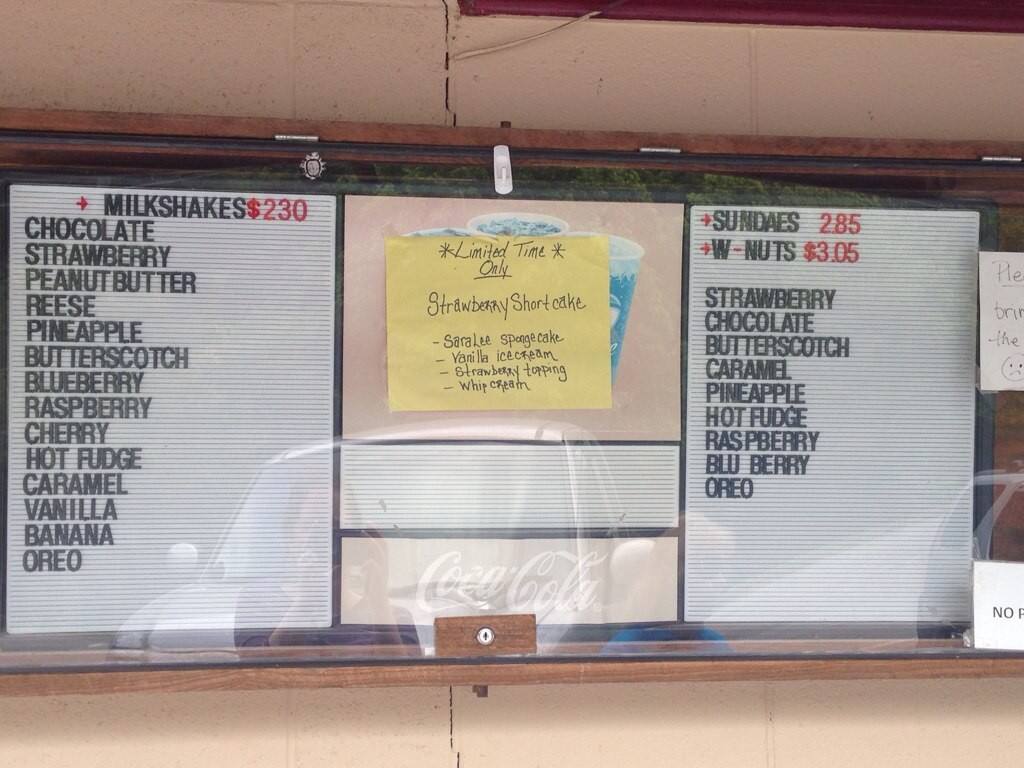 → MILKSHAKES $230
CHOCOLATE
STRAWBERRY
PEANUT BUTTER
REESE
PINEAPPLE
BUTTERSCOTCH
BLUEBERRY
RASPBERRY
CHERRY
HOT FUDGE
CARAMEL
VANILLA
BANANA
OREO
*Limited Time *
Only
Strawberry Shortcake
- Sara Lee spongecake
- Vanilla icecream
- Strawberry topping
- Whip cream
Coca-Cola
→SUNDAES 2.85
→W-NUTS $3.05
STRAWBERRY
CHOCOLATE
BUTTERSCOTCH
CARAMEL
PINEAPPLE
HOT FUDGE
RASPBERRY
BLU BERRY
OREO
the
NO